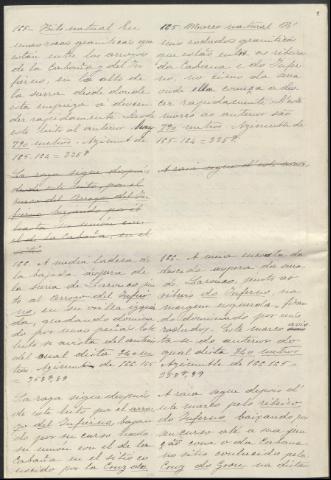 105 - Hito natural. En
unas rocas graníticas que
están entre los arroyos
de la Cabaña y del In-
fierno, en lo alto de
la sierra desde donde
esta empieza a descen-
der rapidamente. Desde
este hito al anterior hay
790 metros. Azimut de
105-104 = 225º
La raya sigue después
desde este hito, por el
arroyo del In-
fierno bajando por él
hasta su unión con
el de la Cabaña, en el
106. A media ladera de
la bajada áspera de
la sierra de Larouco, jun-
to al arroyo del Infier-
no, en su orilla izquier-
da, quedando domina-
do por unas peñas. Este
hito se avista del anterior
del cual dista 760 me-
tros. Azimut de 106-105 =
La raya sigue después
de este hito por el arro-
yo del Infierno bajan-
do por su curso hasta
su unión con el de la
Cabaña en el sitio co-
nocido por la Cruz de
105. Marco natural. N'
uns rochedos graniticos
que estão entre as ribeiras
da Cabana e do Infer-
no, no cimo da serra
onde ella começa a des-
cer rapidamente. D'este
marco ao anterior são
790 metros. Azimute de
105-104 = 225º
A raia segue d'este marco
106. A meia encosta da
descida aspera da serra
de Larouco, junto ao
ribeiro do Inferno, na
margem esquerda, fican-
do dominado por uns
rochedos. Este marco avista-
se do anterior do
qual dista 760 metros
Azimute de 106-105 =
A raia segue depois d'
este marco pelo ribeiro
do Inferno, baixando por
seu curso até a sua jun-
ção com o da Cabana
no sitio conhecido pela
Cruz do